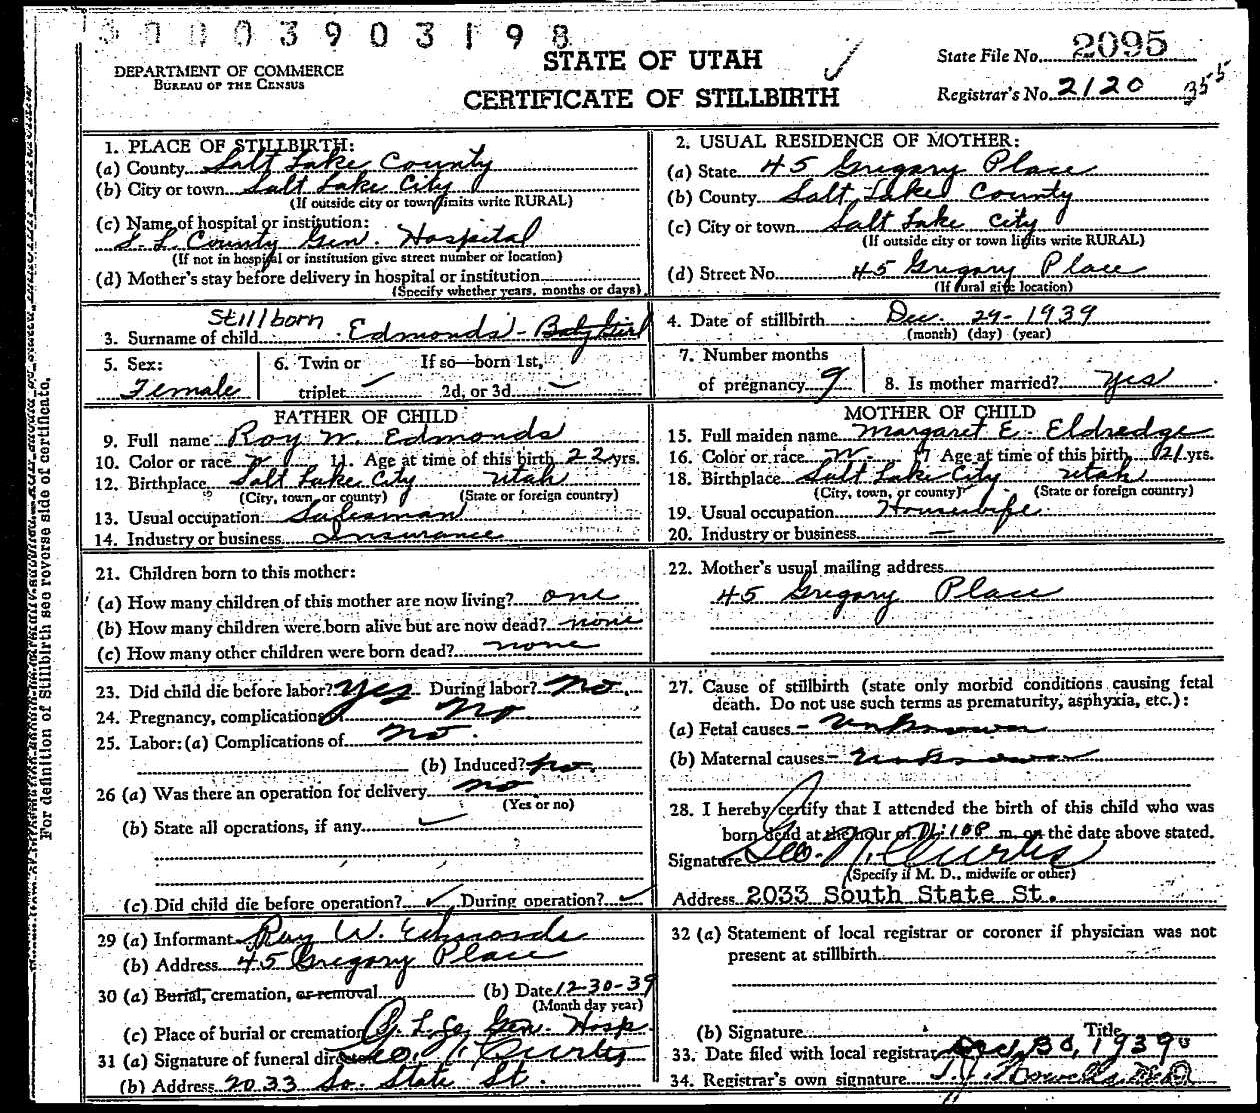 30003903198
STATE OF UTAH
CERTIFICATE OF STILLBIRTH
DEPARTMENT OF COMMERCE
BUREAU OF THE CENSUS
State File No. 2095
Registrar's No. 2120 355
1. PLACE OF STILLBIRTH:
(a) County Salt Lake County
(b) City or town Salt Lake City
(If outside city or town limits write RURAL)
(c) Name of hospital or institution:
S. L. County Gen. Hospital
(If not in hospital or institution give street number or location)
(d) Mother's stay before delivery in hospital or institution
(Specify whether years, months or days)
2. USUAL RESIDENCE OF MOTHER:
(a) State 45 Gregory Place
(b) County Salt Lake County
(c) City or town Salt Lake City
(If outside city or town limits write RURAL)
(d) Street No. 45 Gregory Place
(If rural give location)
Stillborn
3. Surname of child Edmonds - Baby Girl
4. Date of stillbirth Dec. 29- 1939
(month) (day) (year)
5. Sex:
Female
6. Twin or triplet If so—born 1st, 2d, or 3d
7. Number months
of pregnancy 9
8. Is mother married? Yes
FATHER OF CHILD
9. Full name Roy W. Edmonds
10. Color or race W 11. Age at time of this birth 22 yrs.
12. Birthplace Salt Lake City Utah
(City, town, or county) (State or foreign country)
13. Usual occupation Salesman
14. Industry or business Insurance
MOTHER OF CHILD
15. Full maiden name Margaret E. Eldredge
16. Color or race W. 17 Age at time of this birth 21 yrs.
18. Birthplace Salt Lake City Utah
(City, town, or county) (State or foreign country)
19. Usual occupation Housewife
20. Industry or business —
21. Children born to this mother:
(a) How many children of this mother are now living? one
(b) How many children were born alive but are now dead? none
(c) How many other children were born dead? none
22. Mother's usual mailing address
45 Gregory Place
23. Did child die before labor? Yes During labor? No.
24. Pregnancy, complications of No
25. Labor: (a) Complications of No.
(b) Induced? No.
26 (a) Was there an operation for delivery No
(Yes or no)
(b) State all operations, if any
(c) Did child die before operation? During operation?
27. Cause of stillbirth (state only morbid conditions causing fetal
death. Do not use such terms as prematurity, asphyxia, etc.):
(a) Fetal causes - Unknown
(b) Maternal causes - Unknown
28. I hereby certify that I attended the birth of this child who was
born dead at the hour of m. on the date above stated.
Signature Geo. N. Curtis
(Specify if M. D., midwife or other)
Address 2033 South State St.
29 (a) Informant Roy W. Edmonds
(b) Address 45 Gregory Place
30 (a) Burial, cremation, or removal (b) Date 12-30-39
(Month day year)
(c) Place of burial or cremation Gen. Hosp.
31 (a) Signature of funeral director Geo. N. Curtis
(b) Address 2033 So. State St.
32 (a) Statement of local registrar or coroner if physician was not
present at stillbirth
(b) Signature Title
33. Date filed with local registrar Dec. 30, 1939
34. Registrar's own signature
For definition of Stillbirth see reverse side of certificate.